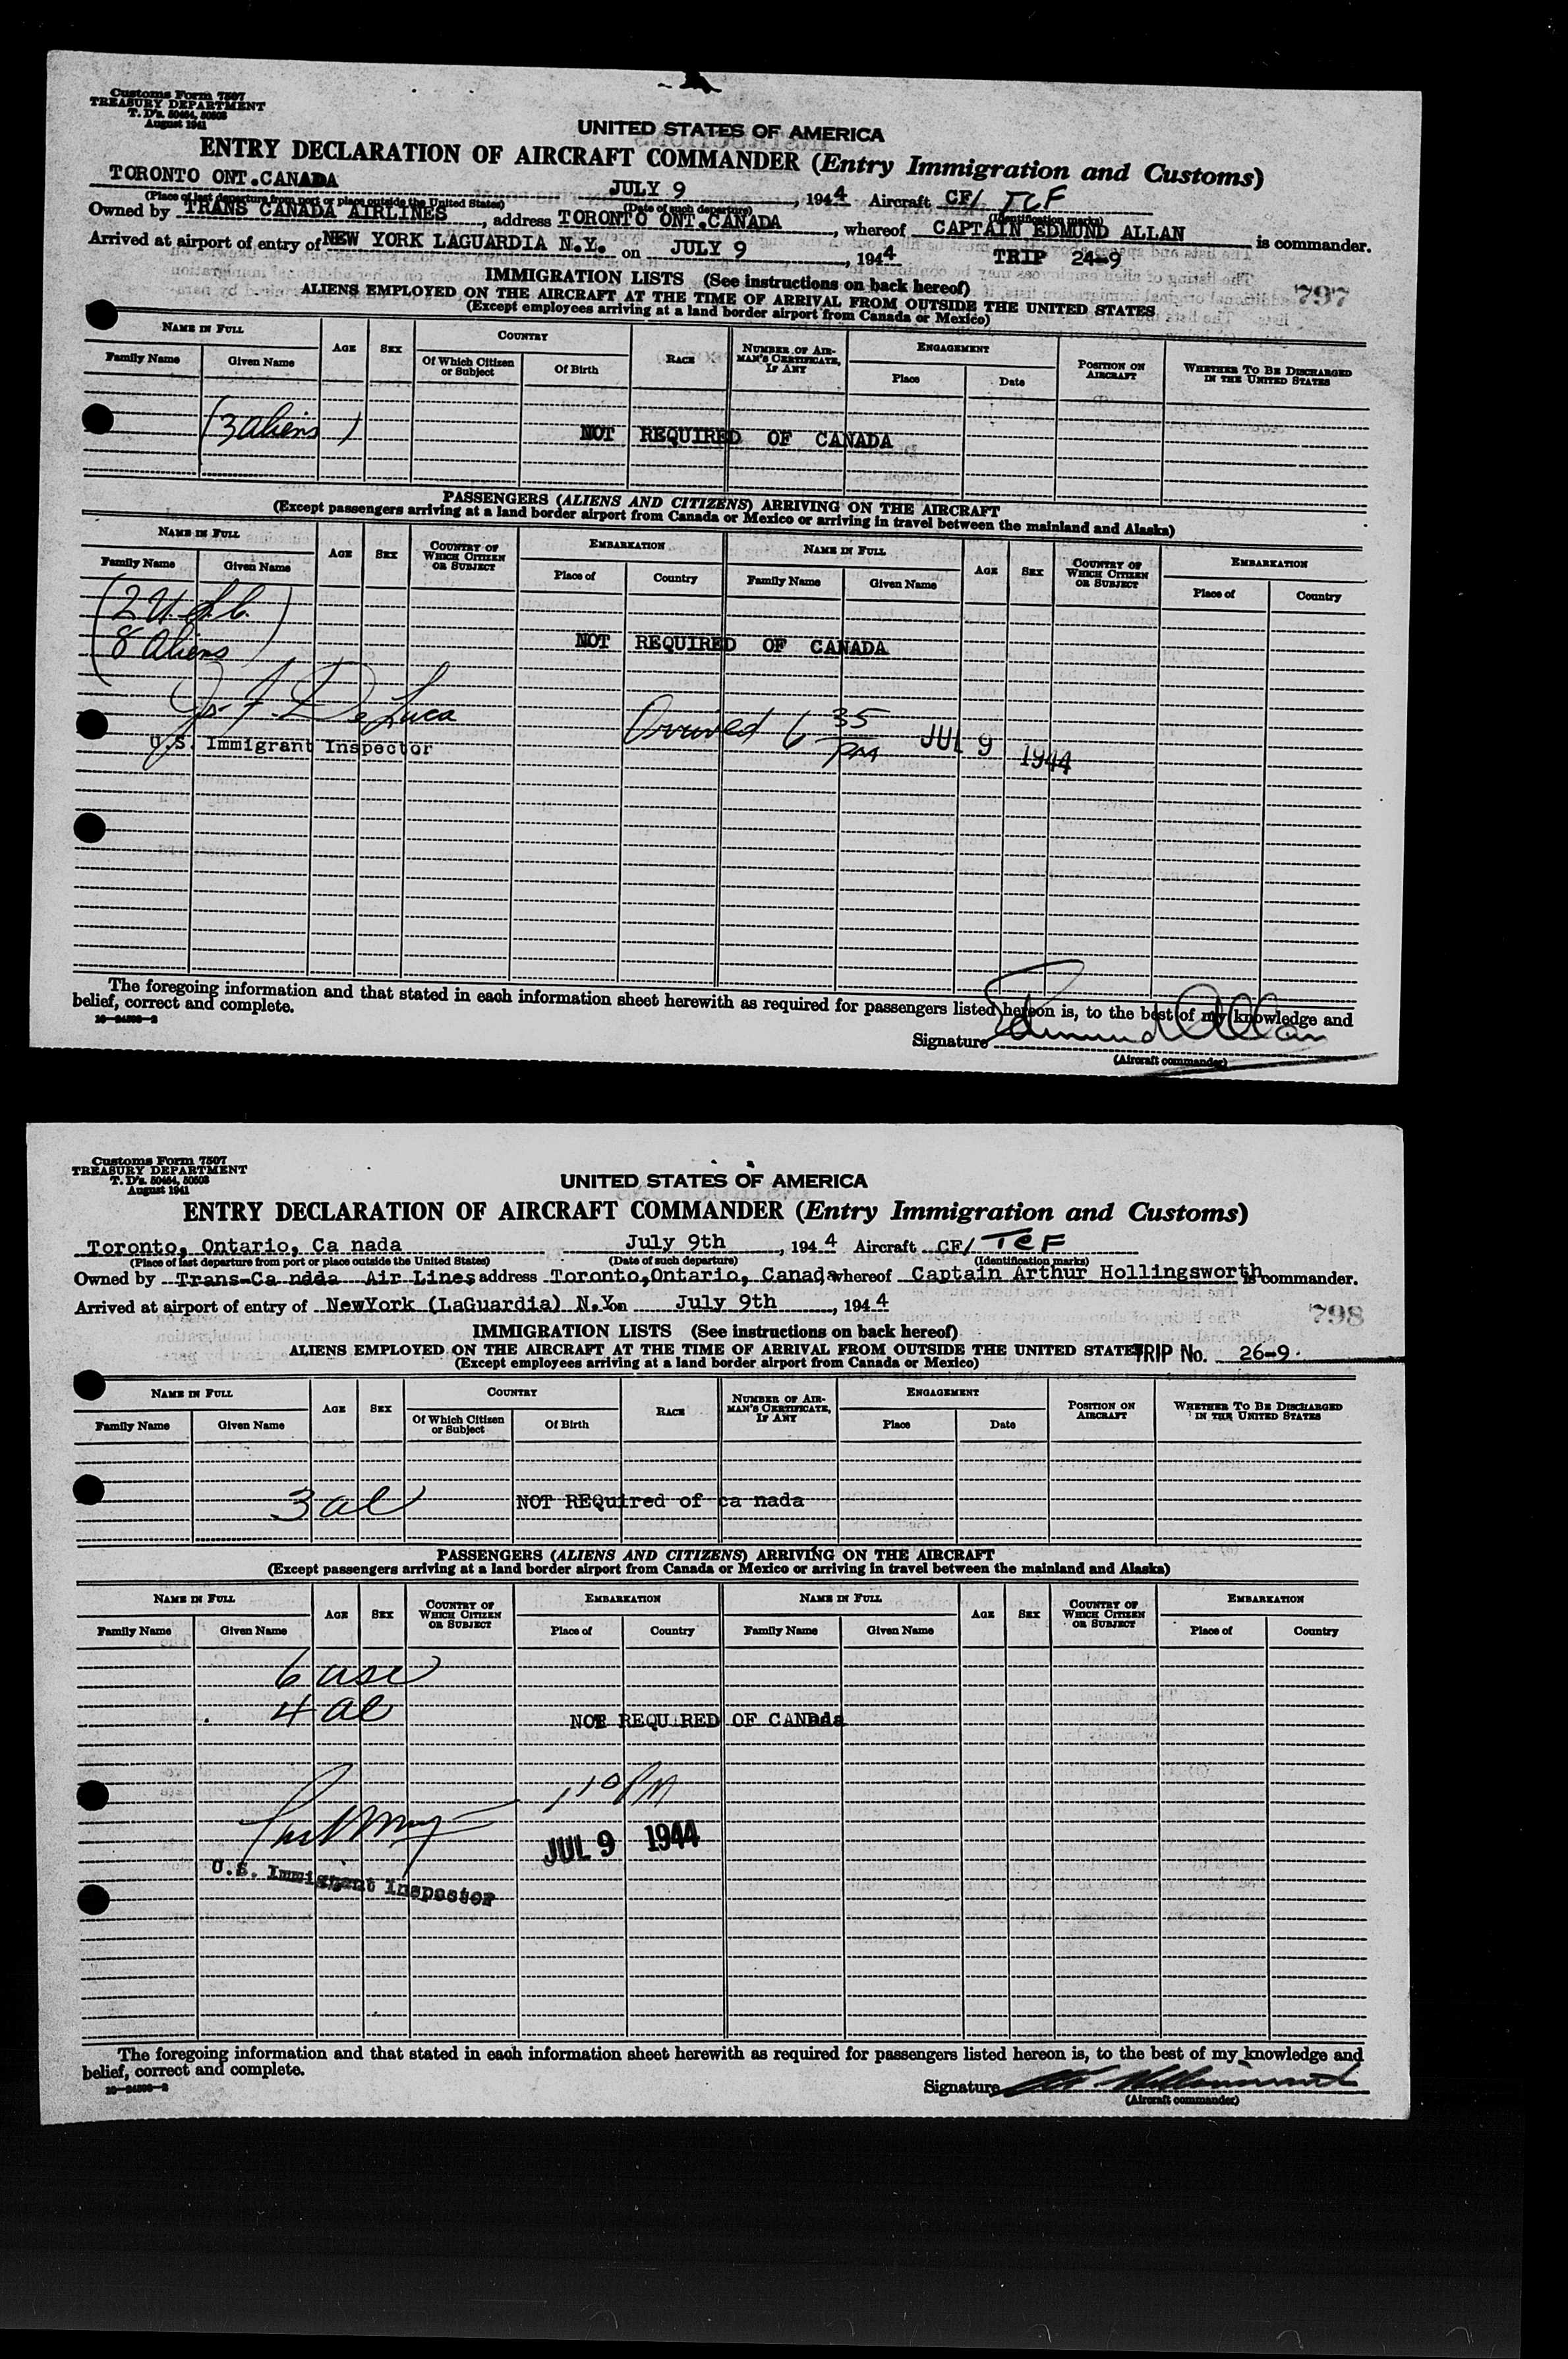 Customs Form 7507
TREASURY DEPARTMENT
T. D's. 50464, 50503
August 1941
UNITED STATES OF AMERICA
ENTRY DECLARATION OF AIRCRAFT COMMANDER (Entry Immigration and Customs)
TORONTO ONT.CANADA JULY 9, 1944 Aircraft CF/ TCF
(Place of last departure from port or place outside the United States) (Date of such departure) (Identification marks)
Owned by TRANS CANADA AIRLINES, address TORONTO ONT.CANADA, whereof CAPTAIN EDMUND ALLAN is commander.
Arrived at airport of entry of NEW YORK LAGUARDIA N.Y. on JULY 9, 1944 TRIP 24-9
797
IMMIGRATION LISTS (See instructions on back hereof)
ALIENS EMPLOYED ON THE AIRCRAFT AT THE TIME OF ARRIVAL FROM OUTSIDE THE UNITED STATES
(Except employees arriving at a land border airport from Canada or Mexico)
NAME IN FULL AGE SEX COUNTRY RACE NUMBER OF AIRMAN'S CERTIFICATE, IF ANY ENGAGEMENT POSITION ON AIRCRAFT WHETHER TO BE DISCHARGED IN THE UNITED STATES
Family Name Given Name Of Which Citizen or Subject Of Birth Place Date
(3 Aliens) NOT REQUIRED OF CANADA
PASSENGERS (ALIENS AND CITIZENS) ARRIVING ON THE AIRCRAFT
(Except passengers arriving at a land border airport from Canada or Mexico or arriving in travel between the mainland and Alaska)
NAME IN FULL AGE SEX COUNTRY OF WHICH CITIZEN OR SUBJECT EMBARKATION NAME IN FULL AGE SEX COUNTRY OF WHICH CITIZEN OR SUBJECT EMBARKATION
Family Name Given Name Place of Country Family Name Given Name Place of Country
(2 U.S.C.
8 Aliens) NOT REQUIRED OF CANADA
De Luca
U.S. Immigrant Inspector Arrived 6 35 PM JUL 9 1944
The foregoing information and that stated in each information sheet herewith as required for passengers listed hereon is, to the best of my knowledge and
belief, correct and complete.
Signature Edmund Allan
(Aircraft commander)
Customs Form 7507
TREASURY DEPARTMENT
T. D's. 50464, 50503
August 1941
UNITED STATES OF AMERICA
ENTRY DECLARATION OF AIRCRAFT COMMANDER (Entry Immigration and Customs)
Toronto, Ontario, Ca nada July 9th, 1944 Aircraft CF/ TCF
(Place of last departure from port or place outside the United States) (Date of such departure) (Identification marks)
Owned by Trans-Ca nada Air Lines address Toronto,Ontario, Canada whereof Captain Arthur Hollingsworth is commander.
Arrived at airport of entry of NewYork (LaGuardia) N.Y. on July 9th, 1944
798
IMMIGRATION LISTS (See instructions on back hereof)
ALIENS EMPLOYED ON THE AIRCRAFT AT THE TIME OF ARRIVAL FROM OUTSIDE THE UNITED STATES TRIP No. 26-9
(Except employees arriving at a land border airport from Canada or Mexico)
NAME IN FULL AGE SEX COUNTRY RACE NUMBER OF AIRMAN'S CERTIFICATE, IF ANY ENGAGEMENT POSITION ON AIRCRAFT WHETHER TO BE DISCHARGED IN THE UNITED STATES
Family Name Given Name Of Which Citizen or Subject Of Birth Place Date
3 al NOT REQuired of ca nada
PASSENGERS (ALIENS AND CITIZENS) ARRIVING ON THE AIRCRAFT
(Except passengers arriving at a land border airport from Canada or Mexico or arriving in travel between the mainland and Alaska)
NAME IN FULL AGE SEX COUNTRY OF WHICH CITIZEN OR SUBJECT EMBARKATION NAME IN FULL AGE SEX COUNTRY OF WHICH CITIZEN OR SUBJECT EMBARKATION
Family Name Given Name Place of Country Family Name Given Name Place of Country
6 usc
4 al NOT REQUIRED OF CANADA
110 PM
JUL 9 1944
U.S. Immigrant Inspector
The foregoing information and that stated in each information sheet herewith as required for passengers listed hereon is, to the best of my knowledge and
belief, correct and complete.
Signature
(Aircraft commander)